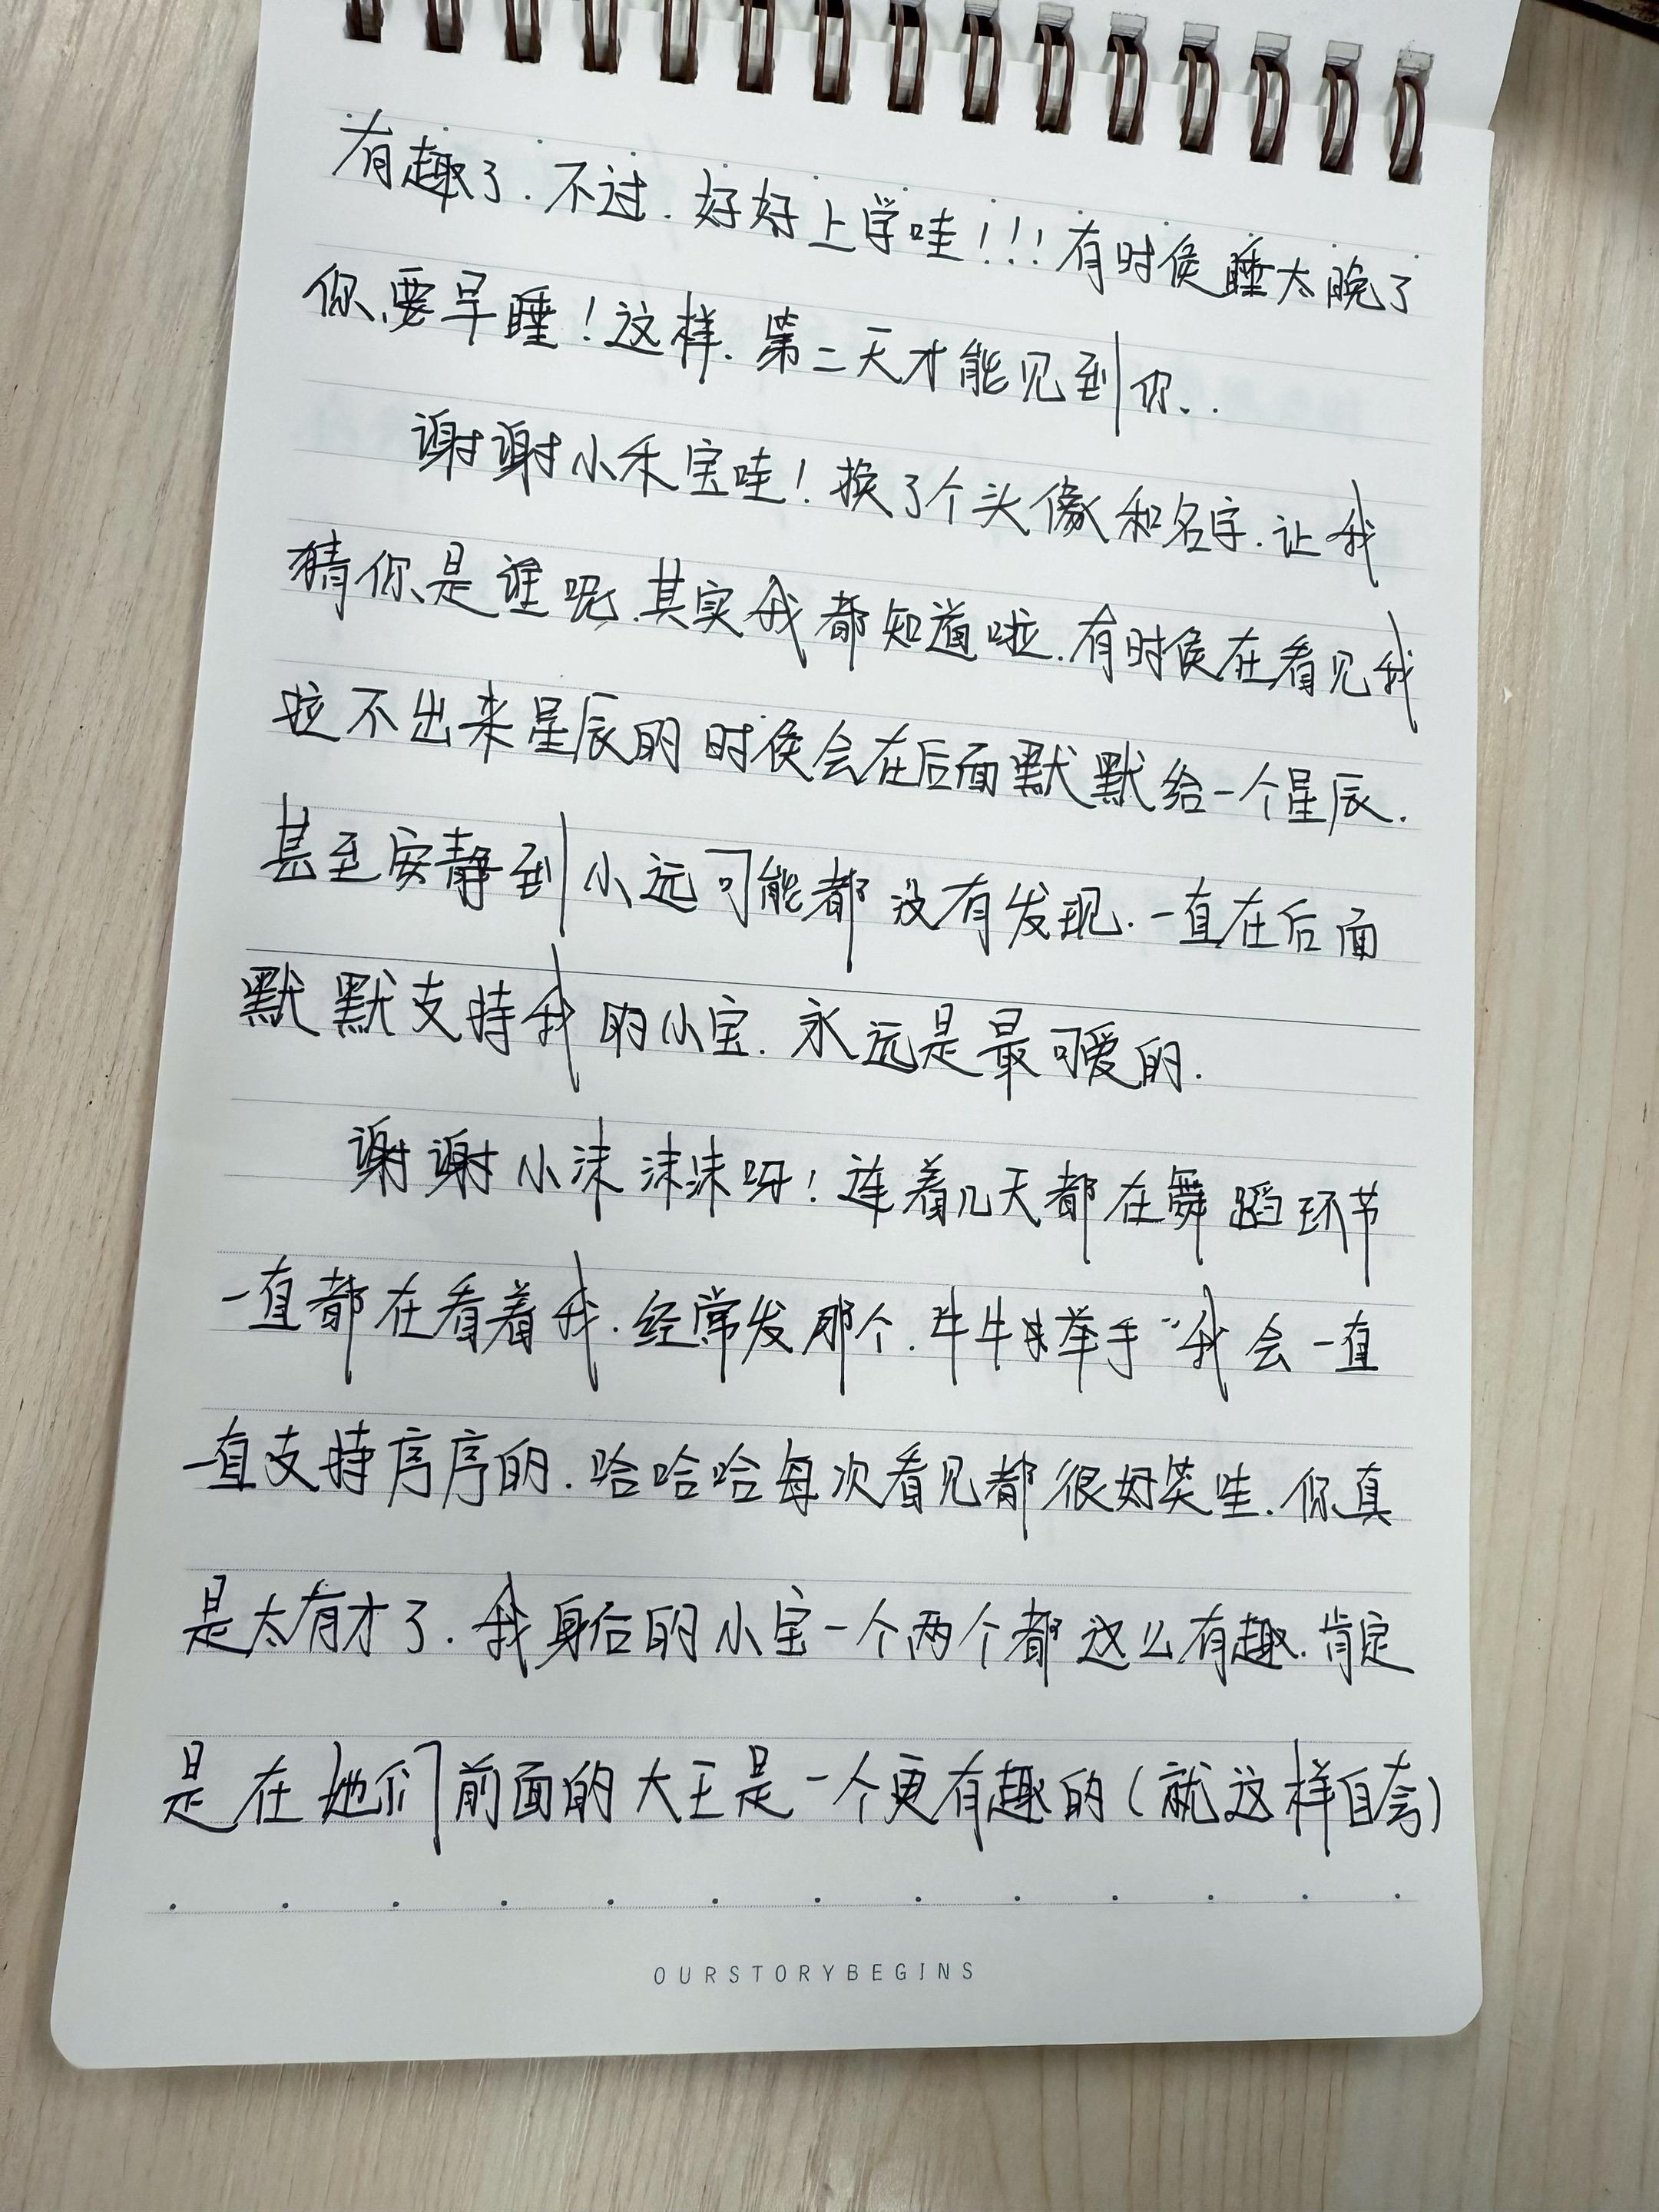 有趣了.不过.好好上学哇!!!有时侯睡太晚了
你要早睡!这样.第二天才能见到你..
谢谢小禾宝哇!换了个头像和名字.让我
猜你是谁呢.其实我都知道啦.有时侯在看见我
拉不出来星辰的时侯会在后面默默给一个星辰.
甚至安静到小远可能都没有发现.一直在后面
默默支持我的小宝.永远是最可爱的.
谢谢小沫沫沫呀!连着几天都在舞蹈环节
一直都在看着我.经常发那个.牛牛举手"我会一直
一直支持序序的.哈哈哈每次看见都很好笑哇.你真
是太有才了.我身后的小宝一个两个都这么有趣.肯定
是在她们前面的大王是一个更有趣的(就这样自夸)
OURSTORYBEGINS